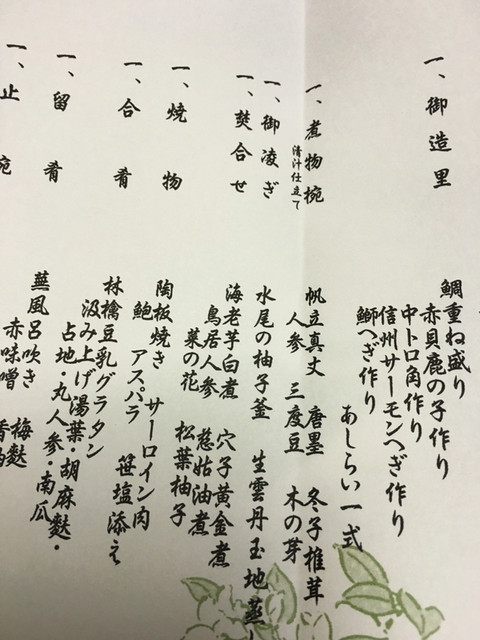 一、御造里
鯛重ね盛り
赤貝鹿の子作り
中トロ角作り
信州サーモンへぎ作り
鰤へぎ作り
あしらい一式
一、煮物椀
清汁仕立て
帆立真丈 唐墨 冬子椎茸
人参 三度豆 木の芽
一、御凌ぎ
水尾の柚子釜 生雲丹玉地蒸し
一、焚合せ
海老芋白煮 穴子黄金煮
鳥居人参 慈姑油煮
菜の花 松葉柚子
一、焼物
陶板焼き サーロイン肉
鮑 アスパラ 笹塩添え
一、合肴
林檎豆乳グラタン
汲み上げ湯葉・胡麻麩・
占地・丸人参・南瓜
一、留肴
蕪風呂吹き 梅麩
赤味噌
一、止椀